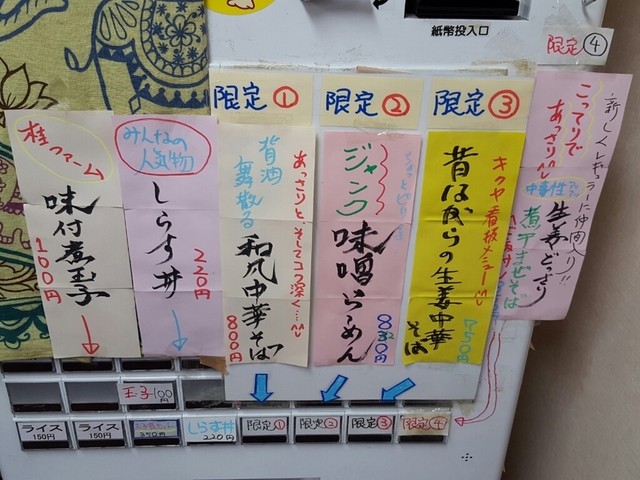 紙幣投入口
限定①
限定②
限定③
限定④
桂ファーム
味付煮玉子
100円
みんなの
人気物
しらす丼
220円
背油
舞散る
あっさりと、そしてコク深く…
和風中華そば
800円
ジャンク
味噌らーめん
830円
キクヤ看板メニュー
昔ながらの生姜中華
そば
750円
新しくレギュラーに仲間入り!!
こってりで
あっさり
生姜どっさり
煮干まぜそば
玉子100円
ライス
150円
ライス
150円
350円
しらす丼
220円
限定①
限定②
限定③
限定④